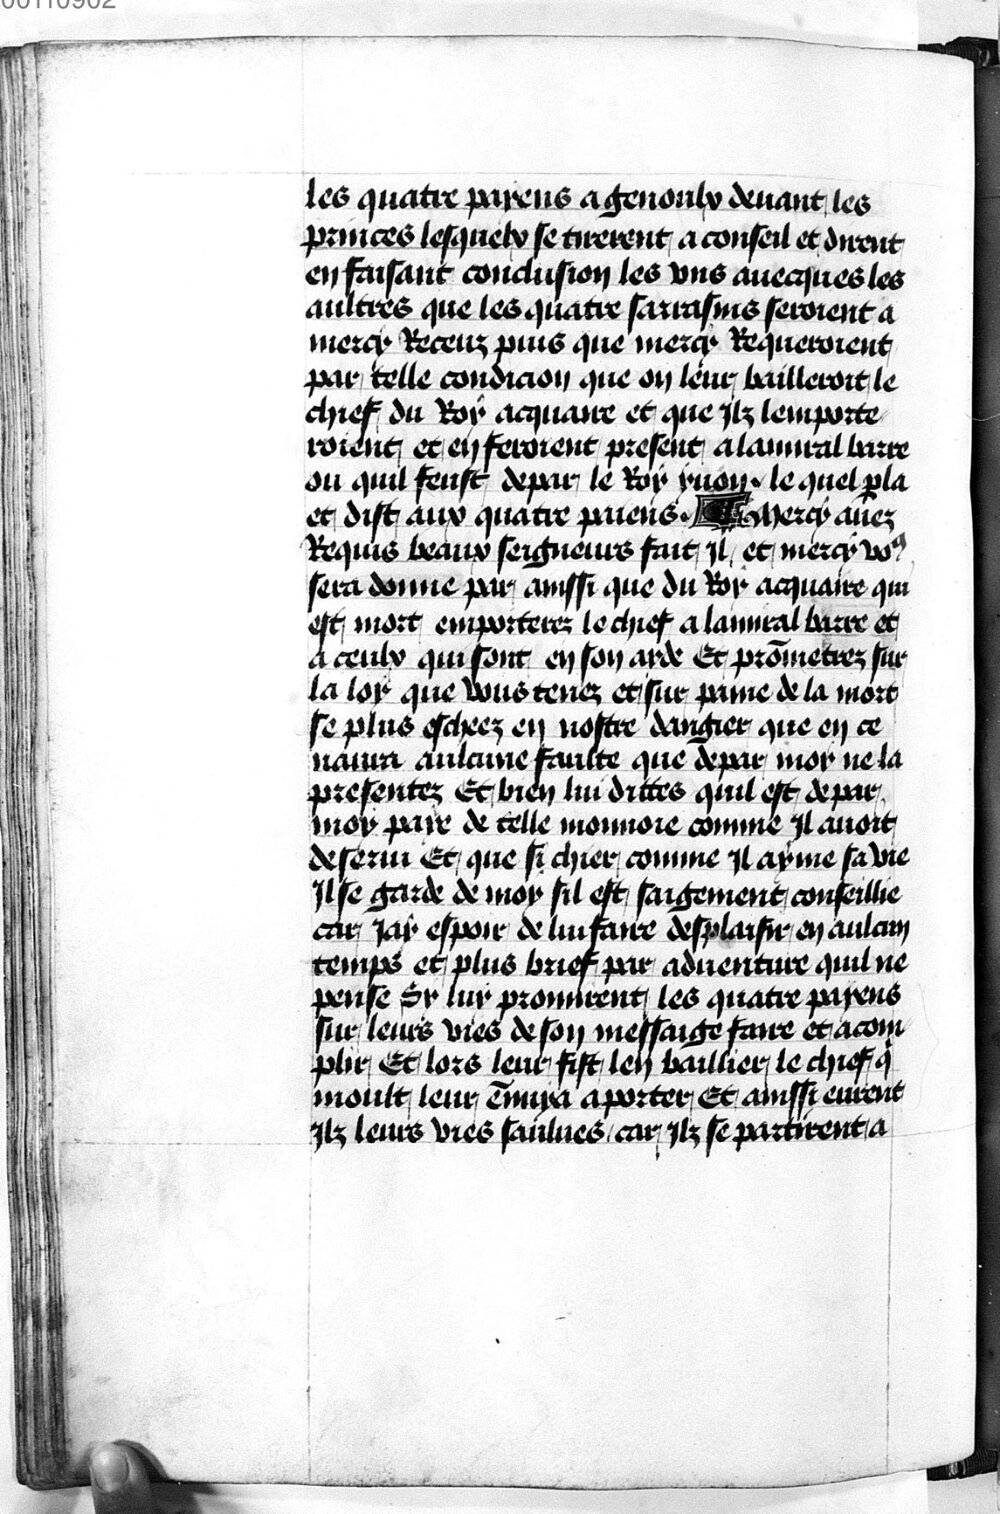 00110902
les quatre payens a genoulx deuant les
princes lesquelx se tirerent a conseil et dirent
en faisant conclusion les vns auecques les
aultres que les quatre sarrasins seroient a
mercy Receuz puis que mercy Requeroient
par telle condicion que on leur bailleroit le
chief du Roy acquaire et que Ilz lemporte
roient et en feroient present a lamiral barre
ou quil feust depar le Roy yuon. le quel pla
et dist aux quatre paiens. Mercy auez
Requis beaux seigneurs fait Il et mercy vo9
sera donne par ainssi que du Roy acquaire qui
est mort emporterez le chief a lamiral barre et
a ceulx qui sont en son arde Et prōmetrez sur
la loy que vous tenez et sur paine de la mort
se plus escheez en nostre dangier que en ce
naura aulcune faulte que depar moy ne la
presentez Et bien lui dittes quil est depar
moy paye de telle monnoie comme Il auoit
deserui Et que si chier comme Il ayme sa vie
Il se garde de moy sil est saigement conseillie
car Jay espoir de lui faire desplaisir en aulcun
temps et plus brief par aduenture quil ne
pense Sy luy promirent les quatre payens
sur leurs vies de son messaige faire et acom
plir Et lors leur fist len baillier le chief q̄
moult leur ēnuya a porter Et ainssi eurent
Ilz leurs vies saulues car Ilz se partirent a